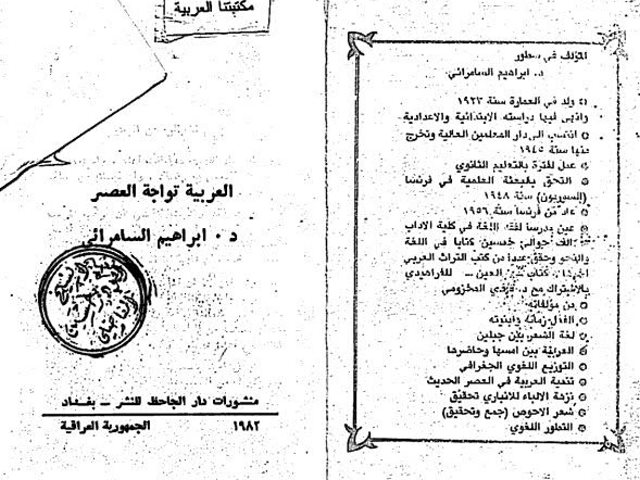 مكتبتنا العربية
العربية تواجة العصر
د . ابراهيم السامرائي
منشورات دار الجاحظ للنشر ــ بغداد
١٩٨٢ الجمهورية العراقية
المؤلف في سطور
د. ابراهيم السامرائي
ولد في العمارة سنة ١٩٢٣
وانهى فيها دراسته الابتدائية والاعدادية
انتسب الى دار المعلمين العالية وتخرج
منها سنة ١٩٤٥
عمل لفترة بالتعليم الثانوي
التحق بالبعثة العلمية في فرنسا
(السوربون) سنة ١٩٤٨
عاد من فرنسا سنة ١٩٥٦
عين مدرسا لفقه اللغة في كلية الاداب
الف حوالي خمسين كتابا في اللغة
والنحو وحقق عددا من كتب التراث العربي
كتاب العين ــ للفراهيدي
بالاشتراك مع د. المخزومي
من مؤلفاته
الفعل زمانه وابنيته
لغة الشعر بين جيلين
العربية بين امسها وحاضرها
التوزيع اللغوي الجغرافي
تنمية العربية في العصر الحديث
نزهة الالباء للانباري تحقيق
شعر الاحوص (جمع وتحقيق)
التطور اللغوي